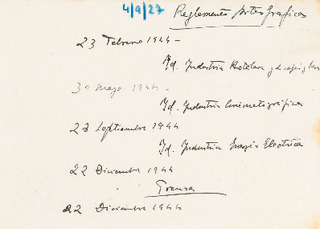 4/9/27 Reglamento Artes Graficas
23 Febrero 1944 -
Id. Industria
30 Mayo 1944 -
Id. Industria Cinematográfica
23 Septiembre 1944
Id. Industria Energía Electrica
22 Diciembre 1944
Prensa
22 Diciembre 1944